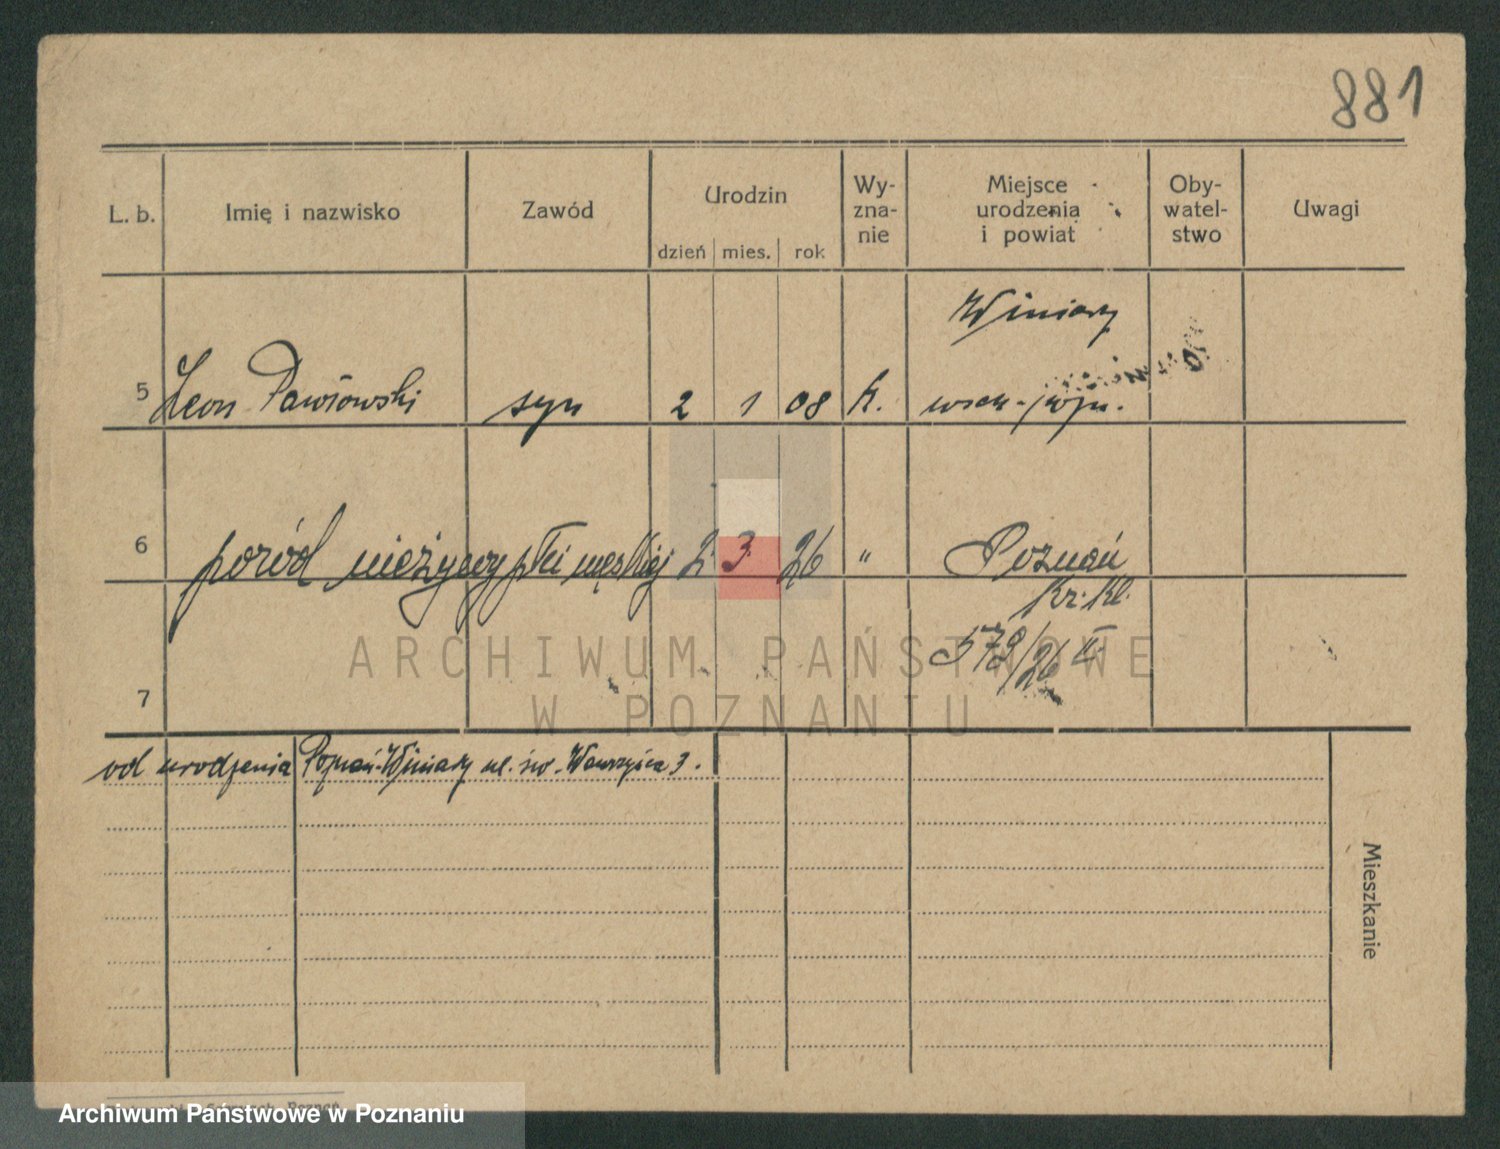 881
L. b. Imię i nazwisko Zawód Urodzin Wy-zna-nie Miejsce urodzenia i powiat Oby-watel-stwo Uwagi
dzień mies. rok
Winiary
5 Leon Pawłowski syn 2 1 08 k.
6 poród nieżywy płci męskiej 2 3 26 " Poznań
kr. kl.
579/26 II
7
od urodzenia Poznań-Winiary ul. św. Wawrzyńca 3.
Mieszkanie
ARCHIWUM PAŃSTWOWE
W POZNANIU
Archiwum Państwowe w Poznaniu